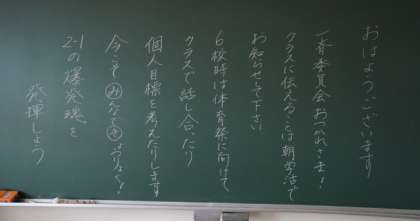 おはようございます
一斉委員会おつかれさま!
クラスに伝えることは朝学活で
お知らせして下さい
6校時は体育祭に向けて
クラスで話し合ったり
個人目標を考えたりします
今こそみんなで
2-1の爆発魂を
発揮しよう